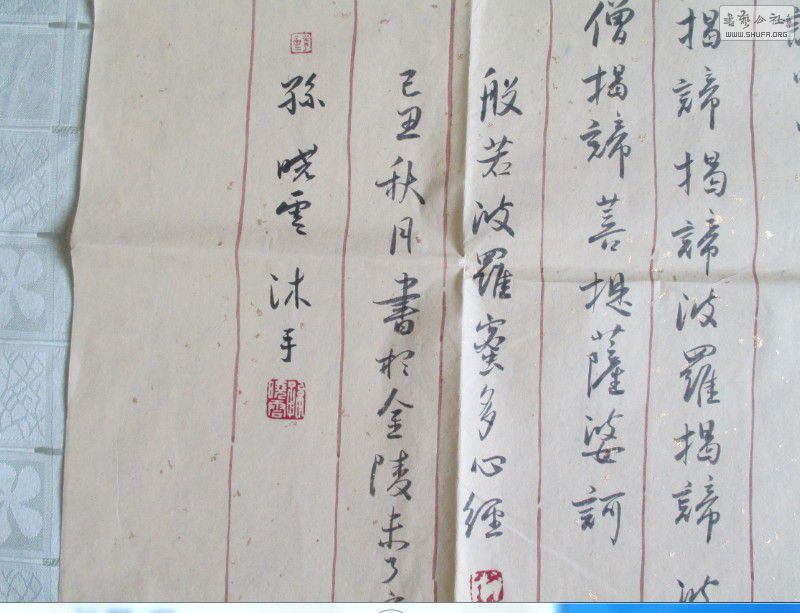 揭諦揭諦波羅揭諦波
僧揭諦菩提薩婆訶
般若波羅蜜多心經
己丑秋月書於金陵未了
孫曉雲沐手
書艺公社
WWW.SHUFA.ORG